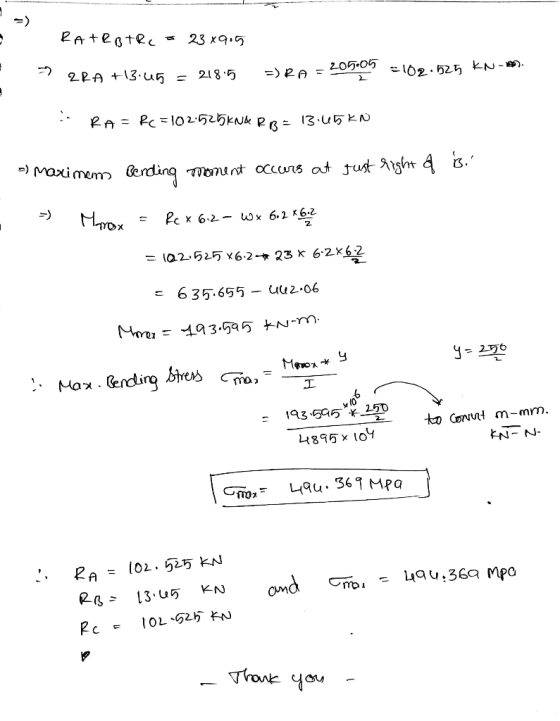 =)
RA+RB+RC = 23×9.5
=) 2RA +13.45 = 218.5 =) RA = 205.05/2 = 102.525 KN-m.
∴ RA = RC = 102.525KN & RB = 13.45 KN
=) Maximem Bending moment occurs at Just right of 'B.'
=) Mmax = RC × 6.2 - W× 6.2 × 6.2/2
= 102.525 ×6.2 - 23 × 6.2×6.2/2
= 635.655 - 442.06
Mmax = 193.595 KN-m.
∴ Max. Bending Stress σmax = Mmax * y / I y = 250/2
= 193.595×10⁶ * 250/2 / 4895×10⁴ to convert m-mm. KN-N.
σmax = 494.369 Mpa
∴ RA = 102.525 KN
RB = 13.45 KN and σmax = 494.369 Mpa
RC = 102.525 KN
- Thank you -